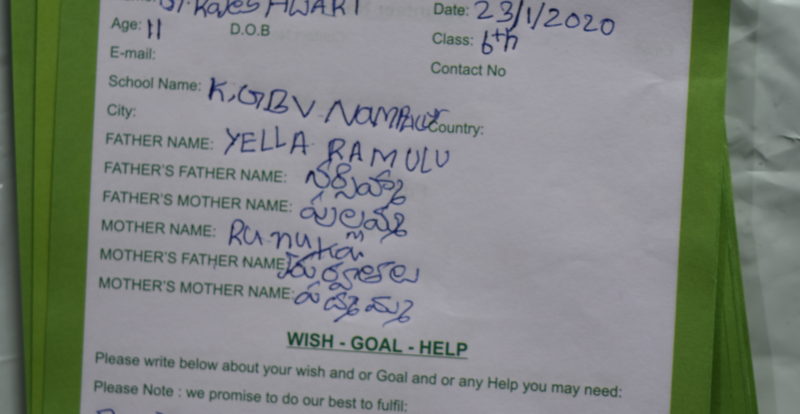 Date: 23/1/2020
Age: 11 D.O.B
Class: 6th
E-mail:
Contact No
School Name: K.GBV
City: Country:
FATHER NAME: YELLA RAMULU
FATHER'S FATHER NAME: నర్సింహ్మ
FATHER'S MOTHER NAME: ఎల్లమ్మ
MOTHER NAME: Ranuka
MOTHER'S FATHER NAME:
MOTHER'S MOTHER NAME:
WISH - GOAL - HELP
Please write below about your wish and or Goal and or any Help you may need:
Please Note : we promise to do our best to fulfil: